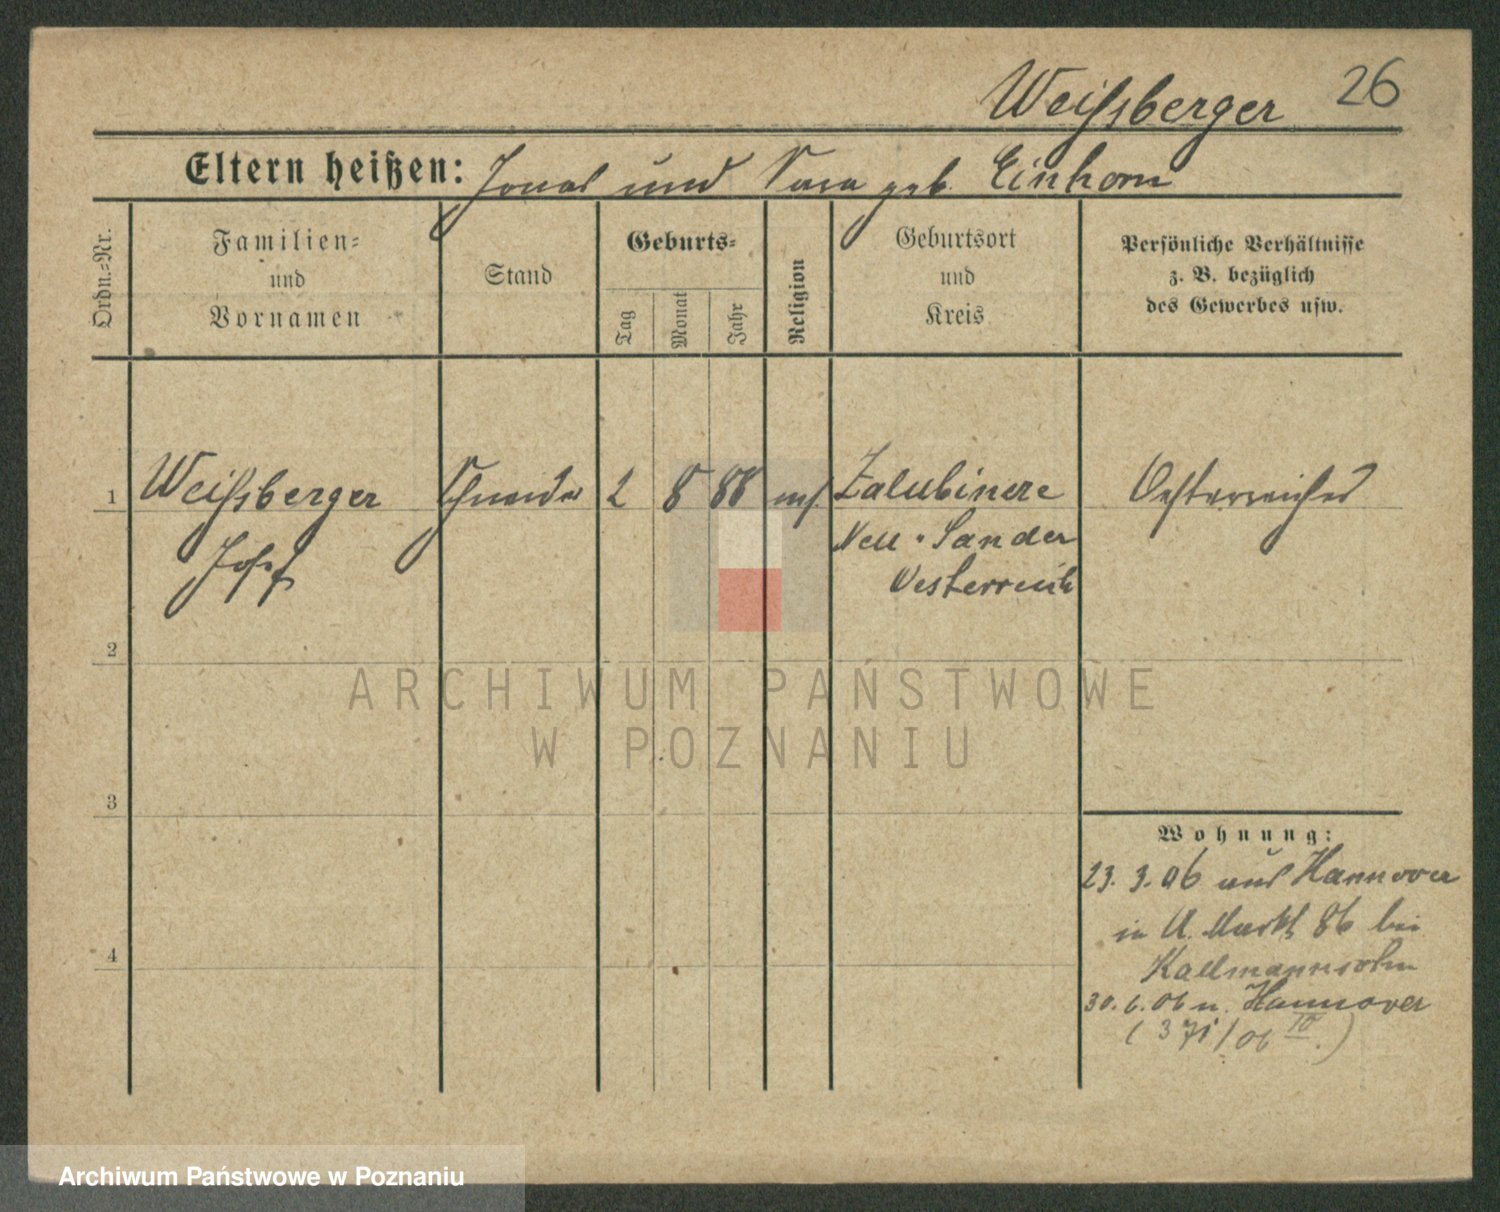 Weißsberger 26
Eltern heißen: Jonas und Sara geb. Einhorn
Ordn.=Nr.
Familien=
und
Vornamen
Stand
Geburts=
Tag
Monat
Jahr
Religion
Geburtsort
und
Kreis
Persönliche Verhältnisse
z. B. bezüglich
des Gewerbes usw.
1 Weißsberger Schneider 2 8 88 mos. Zalubincze Oesterreicher
Josef Neu-Sandez
Oesterreich
2
3
4
Wohnung:
23. 3. 06 aus Hannover
in A. Markt 86 bei
Kallmannsohn
30. 6. 06 n. Hannover
(371/06 IV.)
ARCHIWUM PAŃSTWOWE
W POZNANIU
Archiwum Państwowe w Poznaniu